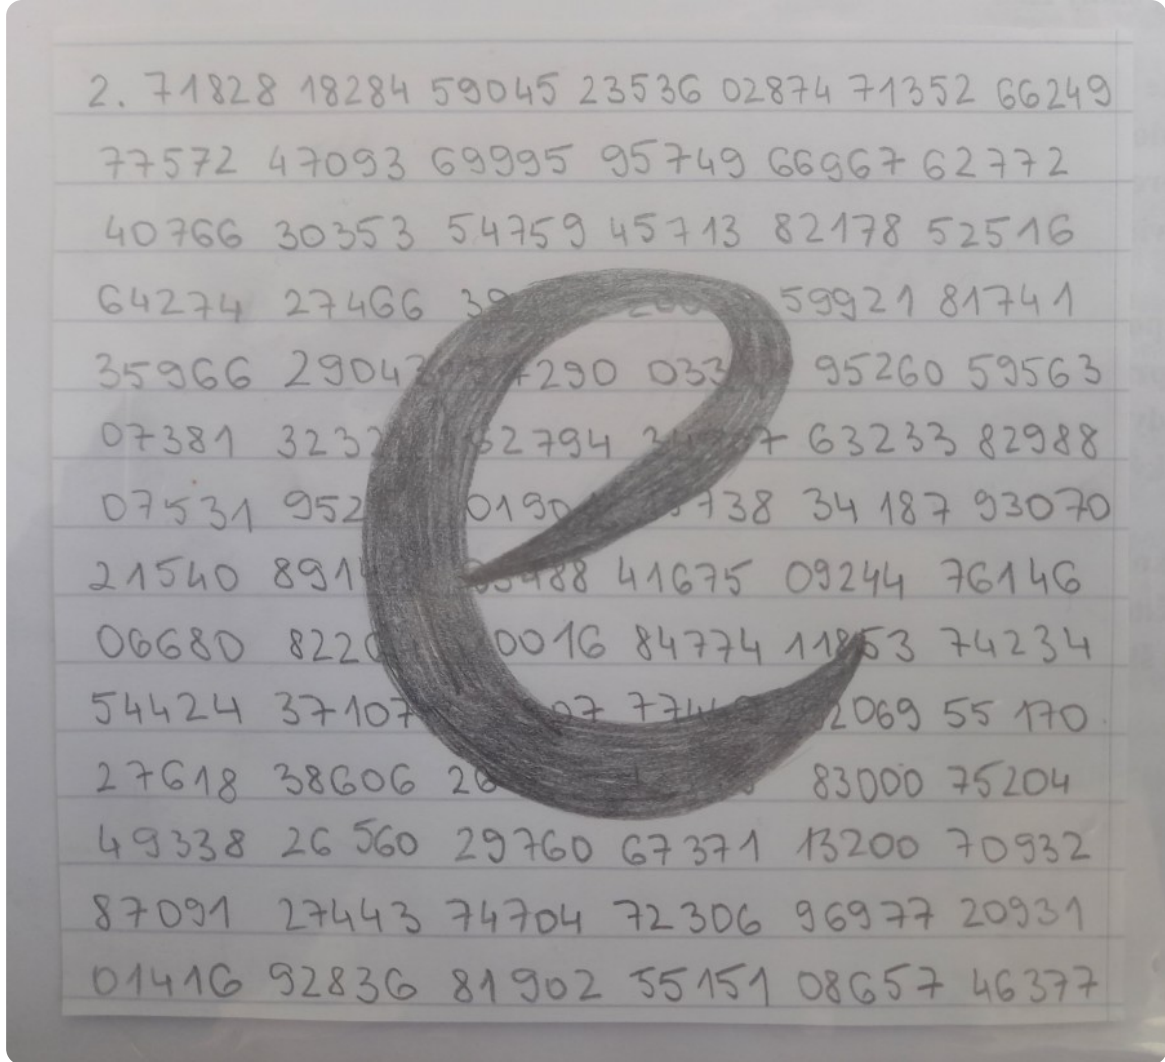 2. 71828 18284 59045 23536 02874 71352 66249
77572 47093 69995 95749 66967 62772
40766 30353 54759 45713 82178 52516
64274 27466 39 59921 81741
35966 2904 7290 033 95260 59563
07381 323 62794 7 63233 82988
07531 952 0190 738 34 187 93070
21540 891 88 41675 09244 76146
06680 822 0016 84774 11853 74234
54424 37107 07 77 2069 55 170
27618 38606 26 83000 75204
49338 26 560 29760 67371 13200 70932
87091 27443 74704 72306 96977 20931
01416 92836 81902 55151 08657 46377
e